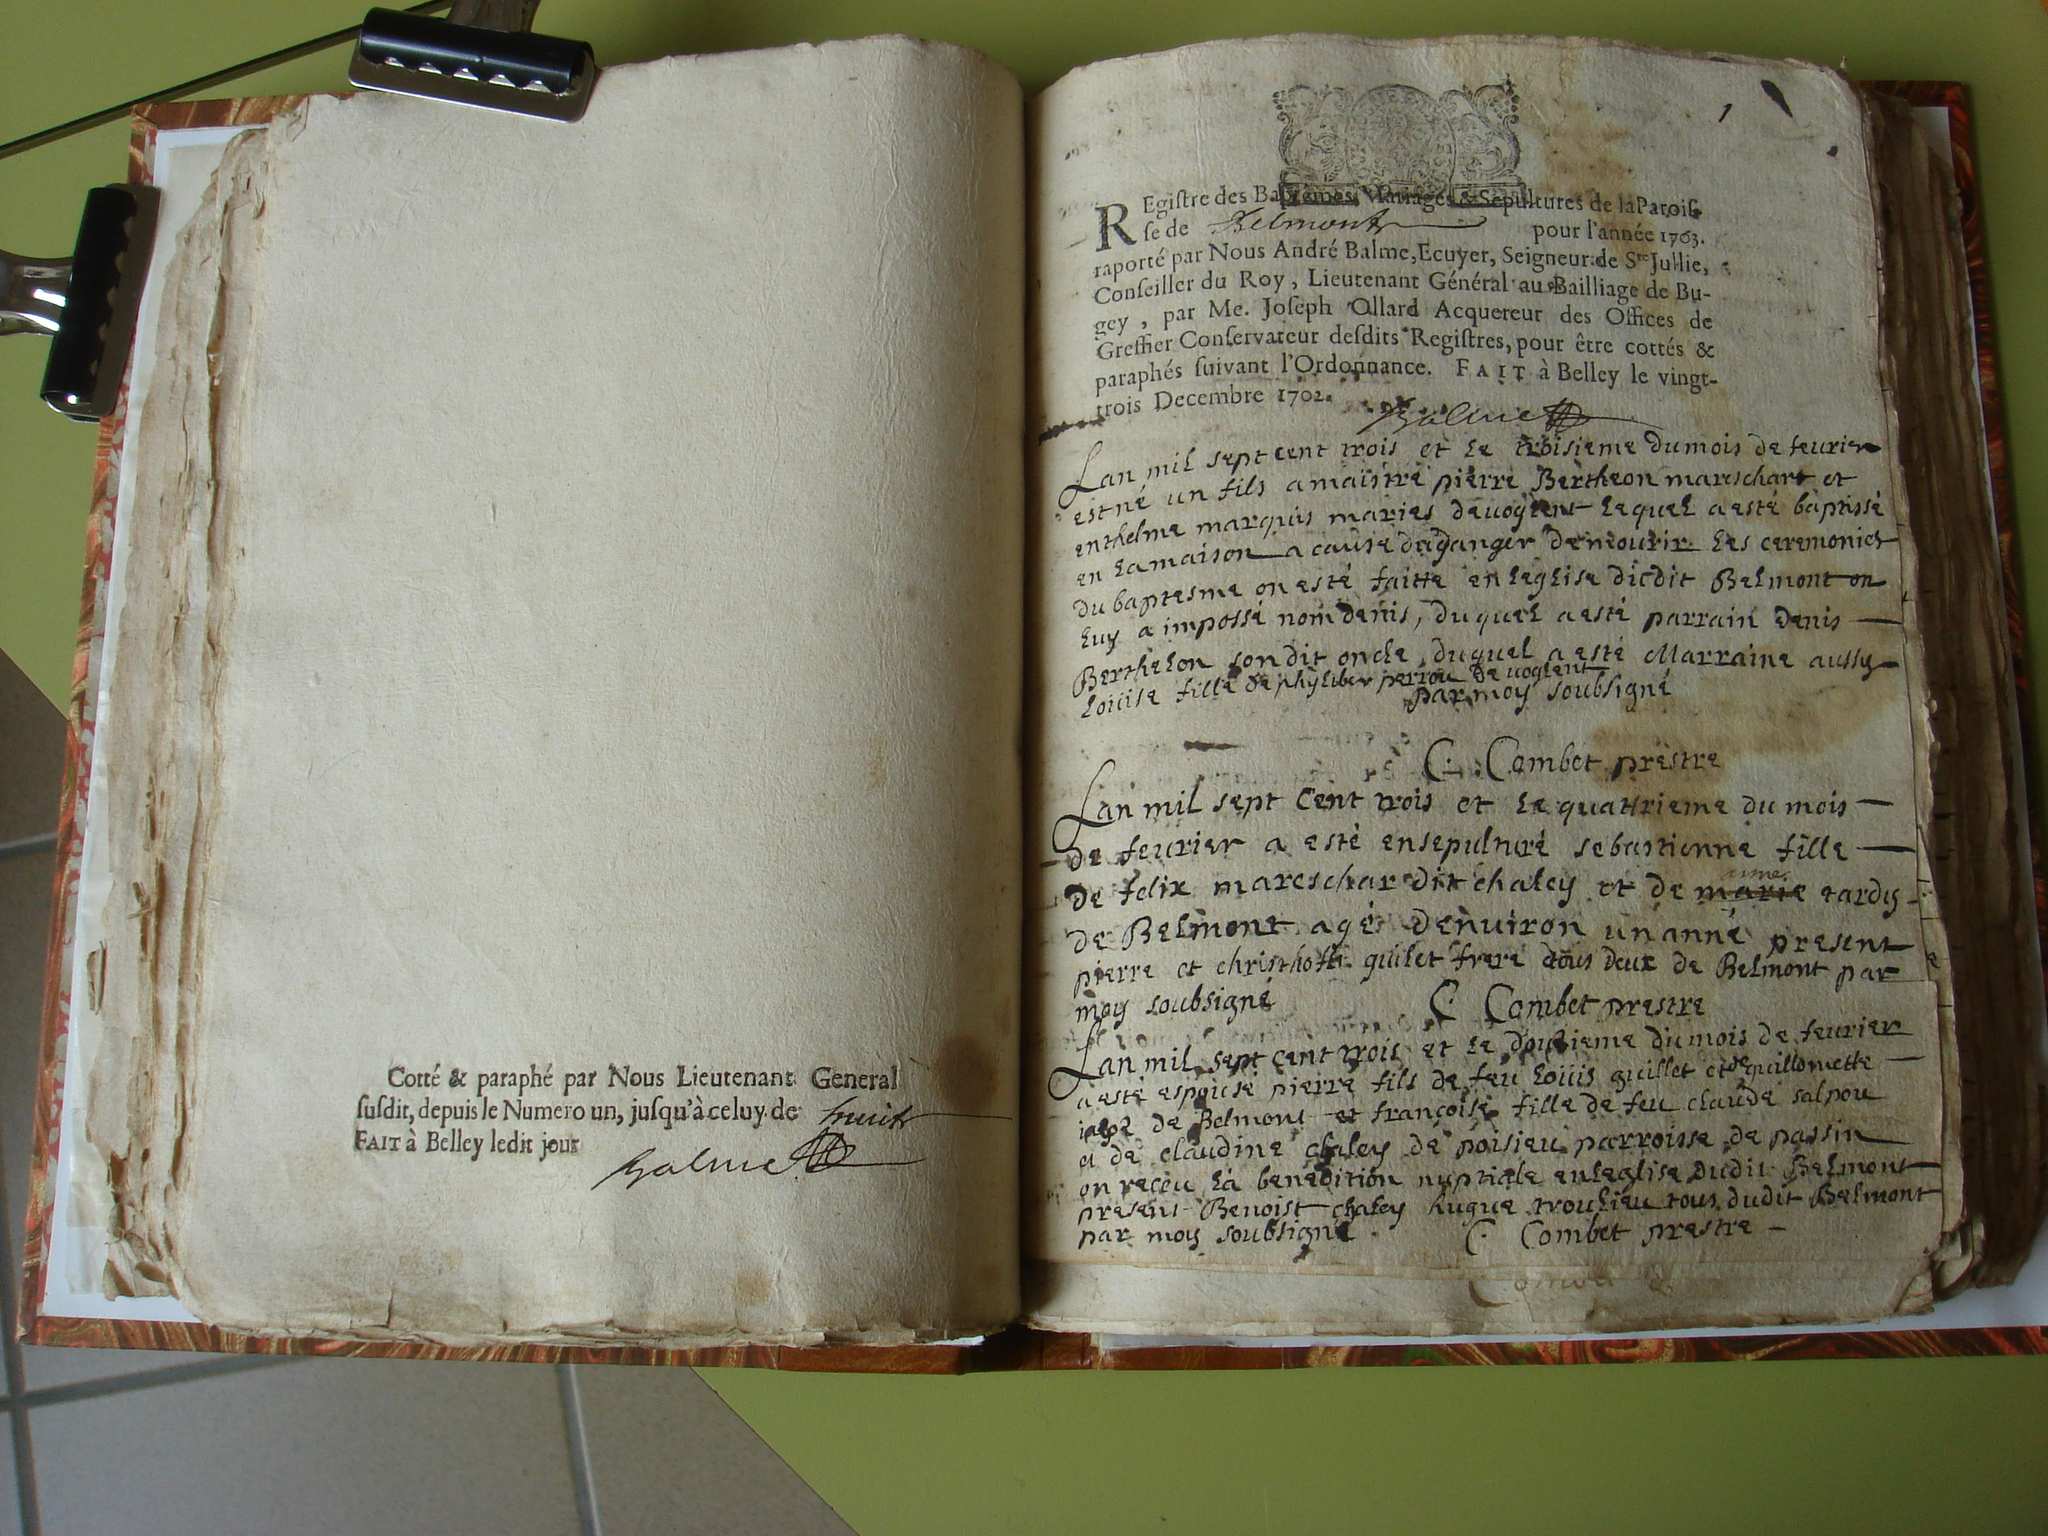 Cotté & paraphé par Nous Lieutenant General
susdit, depuis le Numero un, jusqu'à celuy de huit
FAIT à Belley ledit jour
Balme
1
REgistre des Baptêmes, Mariages & Sepultures de la Parois-
se de Belmont pour l'année 1703.
raporté par Nous André Balme, Ecuyer, Seigneur de Ste Jullie,
Conseiller du Roy, Lieutenant Général au Bailliage de Bu-
gey, par Me. Joseph Ollard Acquereur des Offices de
Greffier Conservateur desdits Registres, pour être cottés &
paraphés suivant l'Ordonnance. FAIT à Belley le vingt-
trois Decembre 1702.
Balme
Lan mil sept cent trois et le troisieme du mois de feurier
est né un fils a maistre pierre Bertheon mareschart et
enthelme marquis maries de uogient lequel a esté baptissé
en la maison a cause du danger de mourir les ceremonies
du baptesme on esté faitte en leglise dicdit Belmont on
luy a impossé nom denis, du quel a esté parrain denis
Berthelon son dit oncle, du quel a esté Marraine aussy
Louise fille de phyliber perrou de uogient
par moy soubsigné
C. Combet prestre
Lan mil sept Cent trois et le quattrieme du mois
de feurier a esté ensepulturé sebastienne fille
de felix mareschar dit chaley et de marie tardy
de Belmont agé denuiron un anné present
pierre et christhofle guilet frere tous deux de Belmont par
moy soubsigné C. Combet prestre
Lan mil sept cent trois et le douzieme du mois de feurier
a esté espousé pierre fils de feu Louis guillet et de guillomette
de Belmont et françoise fille de feu claude salpou
et de claudine chaley de poisieu parroisse de passin
on reçeu la benedition nuptialle en leglise dudit Belmont
present Benoist chaley hugue troulieu tous dudit Belmont
par moy soubsigné. C. Combet prestre